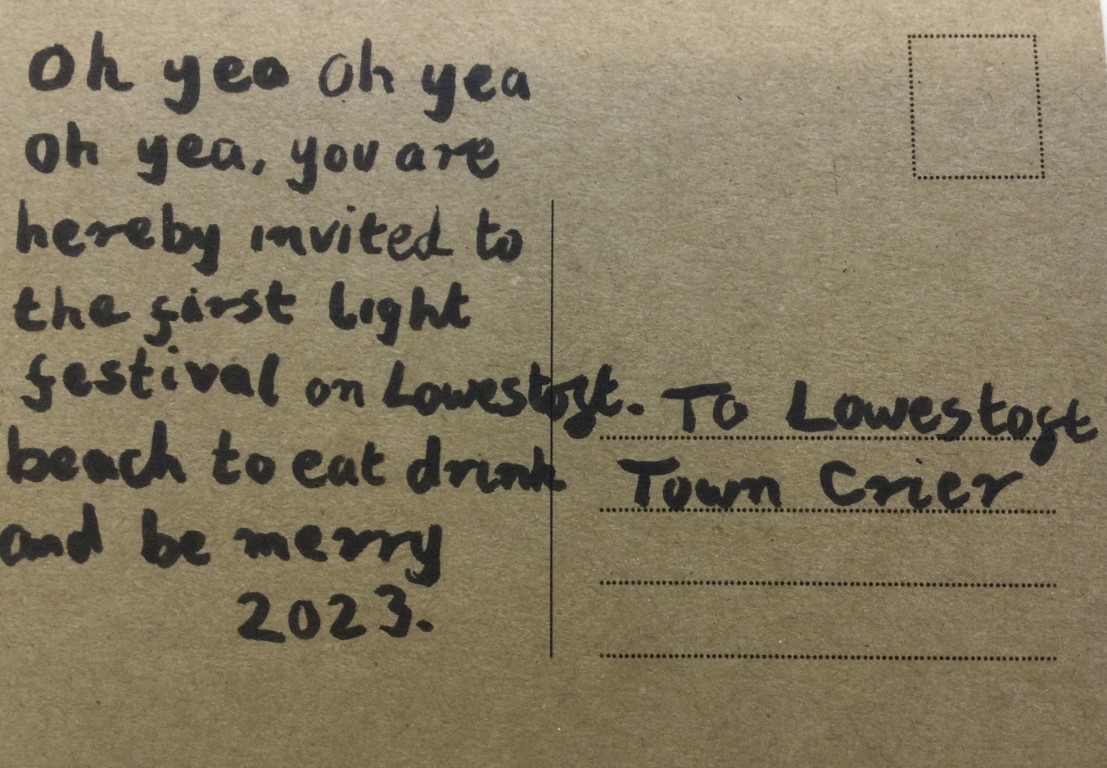 Oh yea Oh yea
Oh yea, you are
hereby invited to
the first light
festival on Lowestoft.
beach to eat drink
and be merry
2023.
To Lowestoft
Town Crier